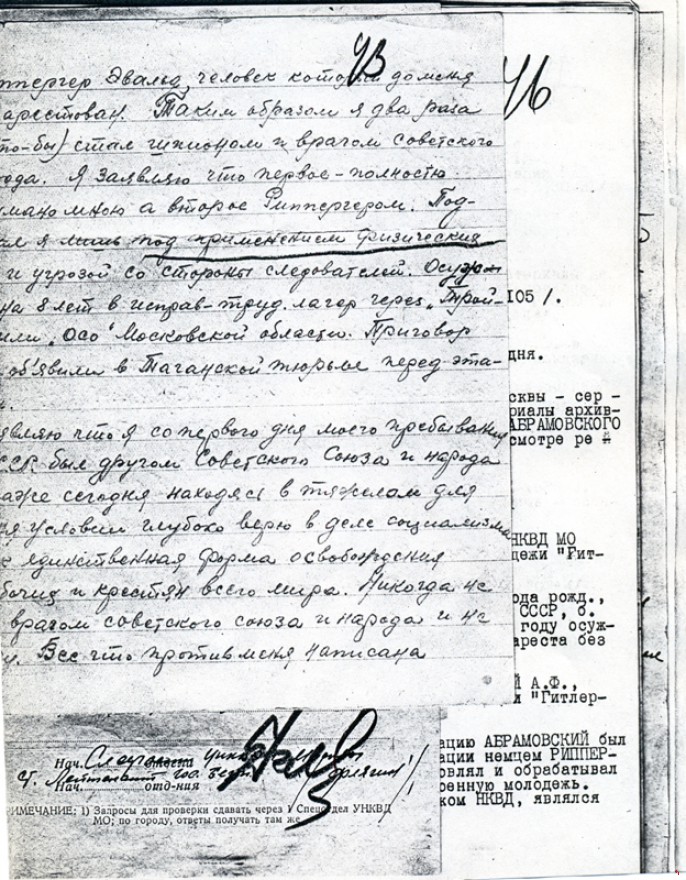 43
46
ппергер Эвальд человек который до меня
арестован. Таким образом я два раза
то-бы) стал шпионом и врагом советского
рода. Я заявляю что первое-полностью
мано мною а второе Риппергером. Под-
л я лишь под применением физических
и угрозой со стороны следователей. Осужден
на 8 лет в исправ-труд. лагер через „Трой-
или „Осо" Московской области. Приговор
об'явили в Таганской тюрьме перед эта-
являю что я со первого дня моего пребывания
ССР был другом Советского Союза и народа
аже сегодня находясь в тяжелом для
я условии глубоко верю в деле социализма
к единственная форма освобождения
бочих и крестян всего мира. Никогда не
врагом советского союза и народа и не
у. Все что против меня написана
105/.
дня.
сквы - сер -
риалы архив-
АБРАМОВСКОГО
смотре ре
НКВД МО
дежи "Гит-
ода рожд.,
СССР, б.
году осуж-
ареста без
Й А.Ф.,
и "Гитлер-
ацию АБРАМОВСКИЙ был
ации немцем РИППЕР-
овлял и обрабатывал
ренную молодежь.
ком НКВД, являлся
Нач.
Нач. отд-ния
ИМЕЧАНИЕ: 1) Запросы для проверки сдавать через 1 Спецотдел УНКВД
МО; по городу, ответы получать там же